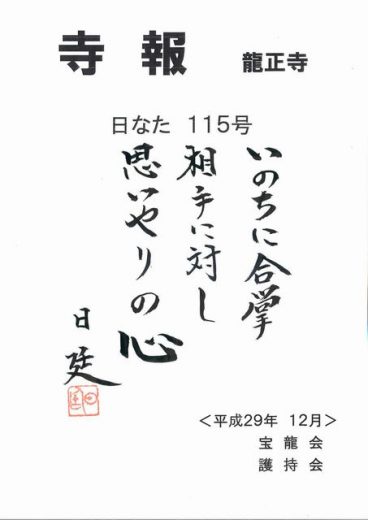 寺報 龍正寺
日なた 115号
いのちに合掌
相手に対し
思いやりの心
日廷
<平成29年 12月>
宝龍会
護持会